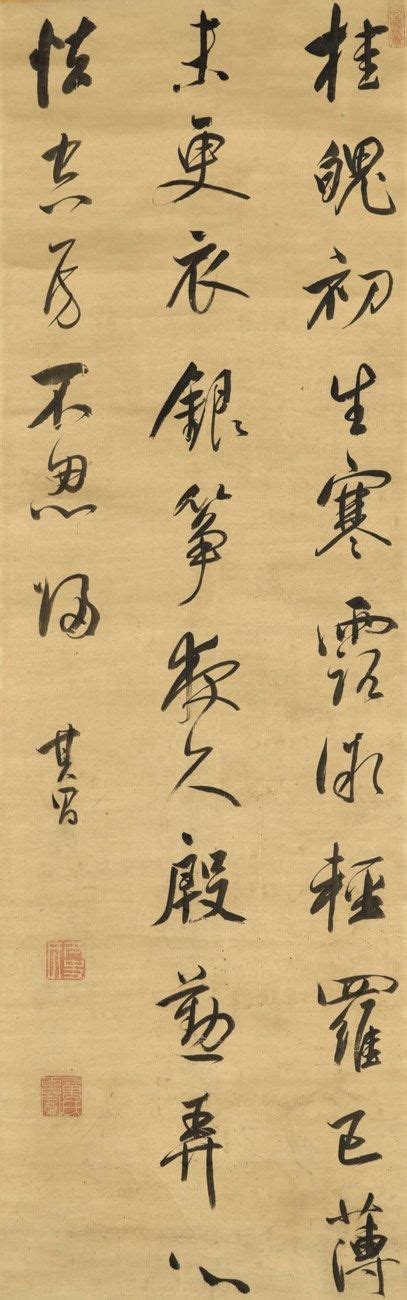 桂魄初生寒露微輕羅已薄
未更衣銀箏夜久殷懃弄心
怯空房不忍歸
其昌